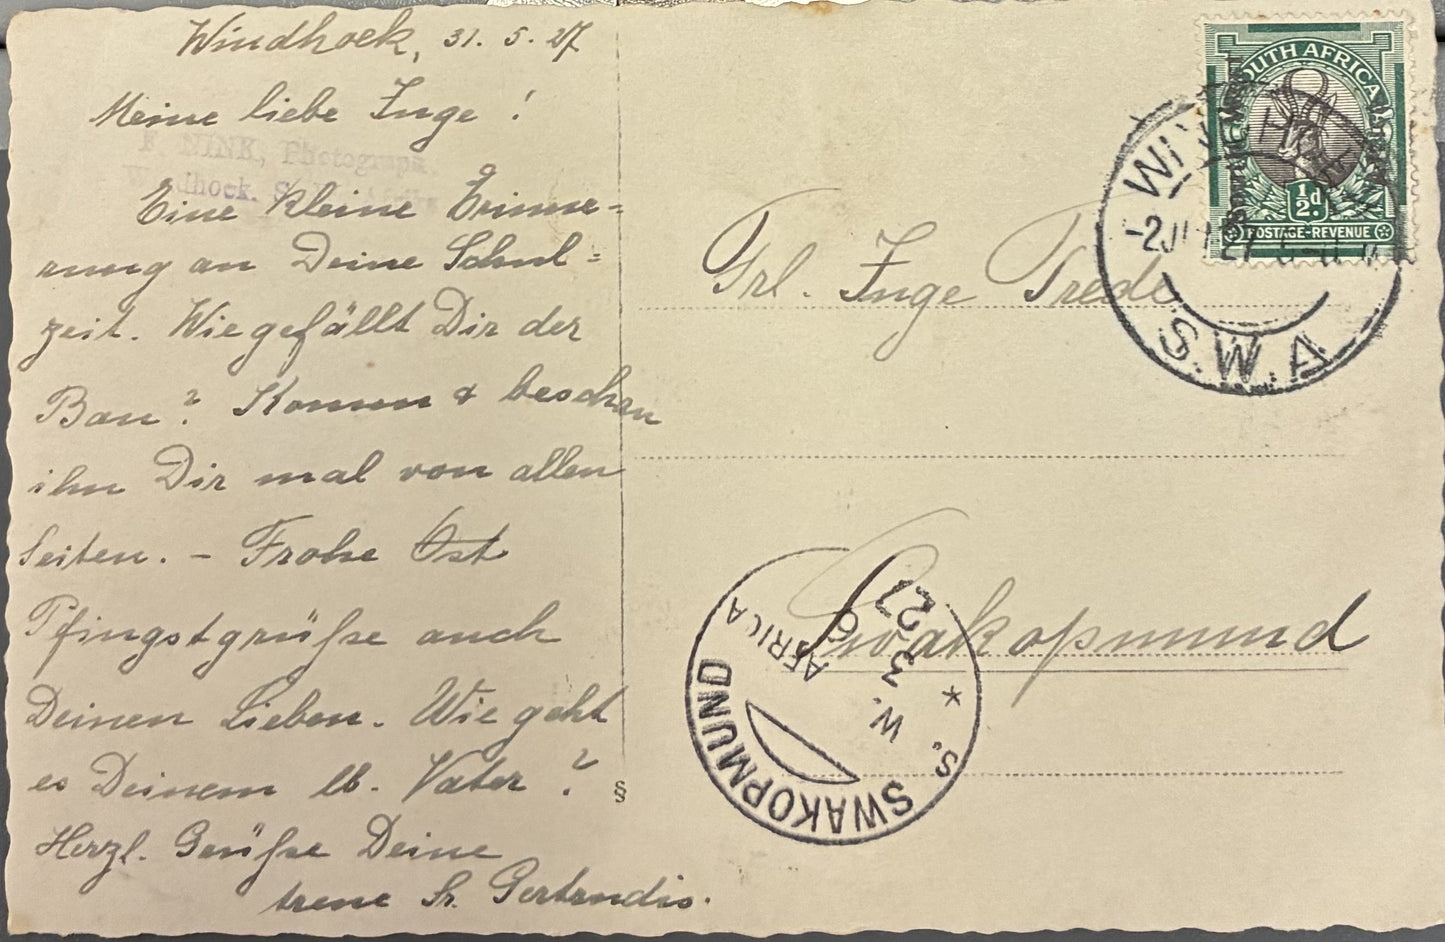 Windhoek, 31. 5. 27
Meine liebe Inge!
F. NINK, Photograph
Windhoek, S.
Eine kleine Erinne-
rung an Deine Schul-
zeit. Wie gefällt Dir der
Bau? Komm & beschau
ihn Dir mal von allen
Seiten. - Frohe Ost
Pfingstgrüße auch
Deinen Lieben. Wie geht
es Deinem lb. Vater?
Herzl. Grüße Deine
treue Sr. Gertrudis.
§
SOUTH AFRICA
SOUTH WEST
½d.
POSTAGE-REVENUE
WINDHOEK
-2 JUN 27
S.W.A
Frl. Inge Trede
Swakopmund
SWAKOPMUND
* S. W. AFRICA
AFRICA
3 6 27